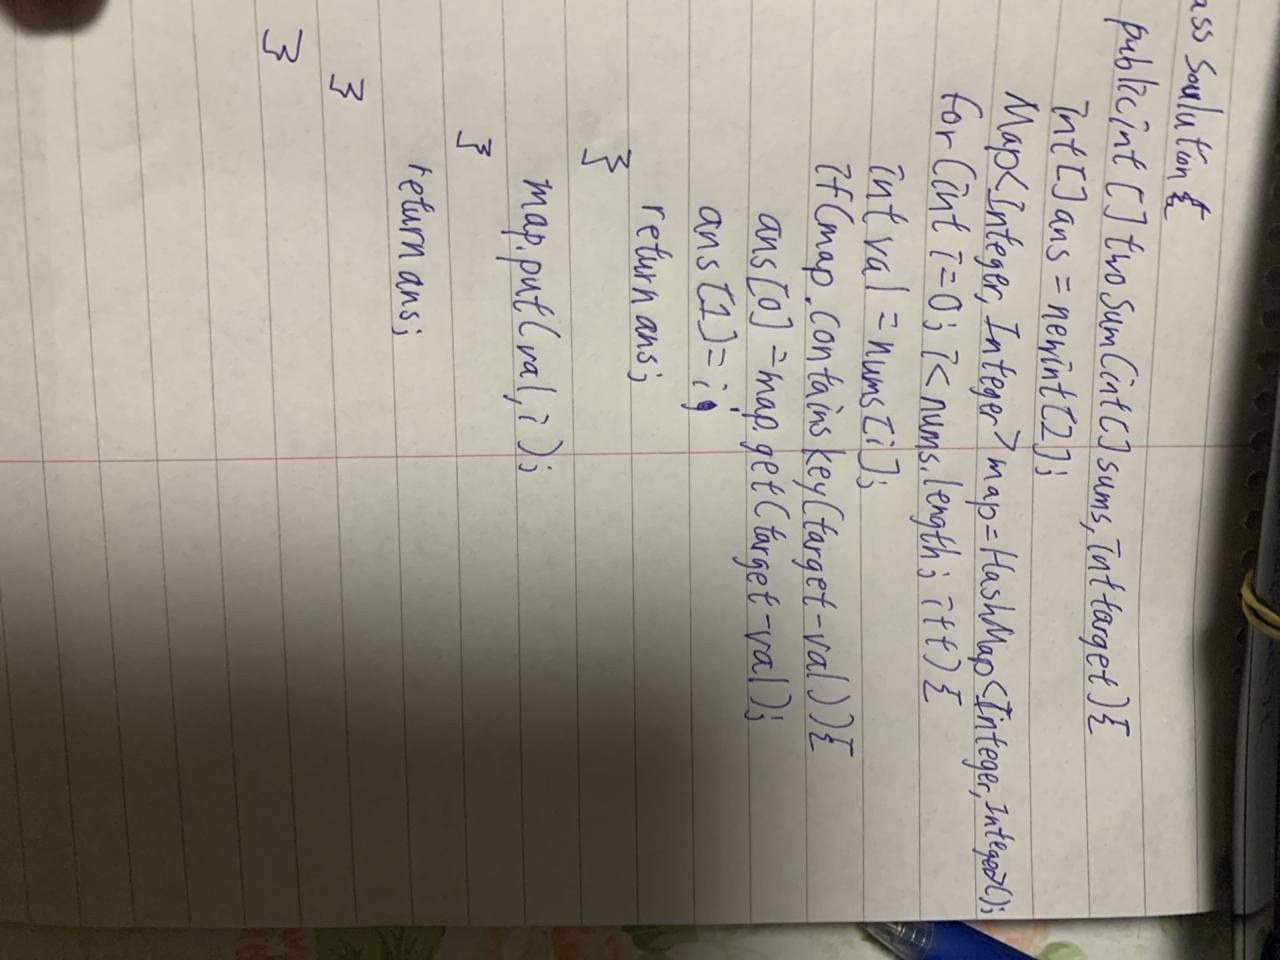 ass Soulution {
public int [] twoSum(int[] sums, int target) {
int[] ans = new int[2];
Map<Integer, Integer> map = HashMap<Integer, Integer>();
for (int i = 0; i < nums.length; i++) {
int val = nums[i];
if (map.contains key(target-val)) {
ans[0] = map.get(target-val);
ans[1] = i;
return ans;
}
map.put(val, i);
}
return ans;
}
}